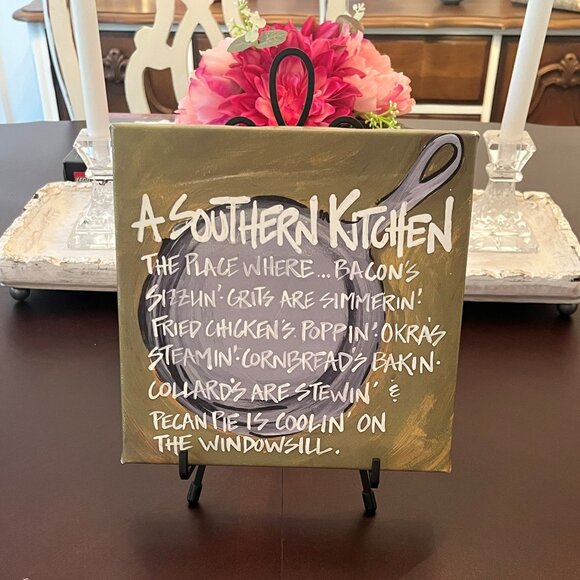 A SOUTHERN KITCHEN
THE PLACE WHERE... BACON'S
SIZZLIN'· GRITS ARE SIMMERIN'·
FRIED CHICKEN'S POPPIN'· OKRA'S
STEAMIN'· CORNBREAD'S BAKIN·
COLLARD'S ARE STEWIN' &
PECAN PIE IS COOLIN' ON
THE WINDOWSILL.